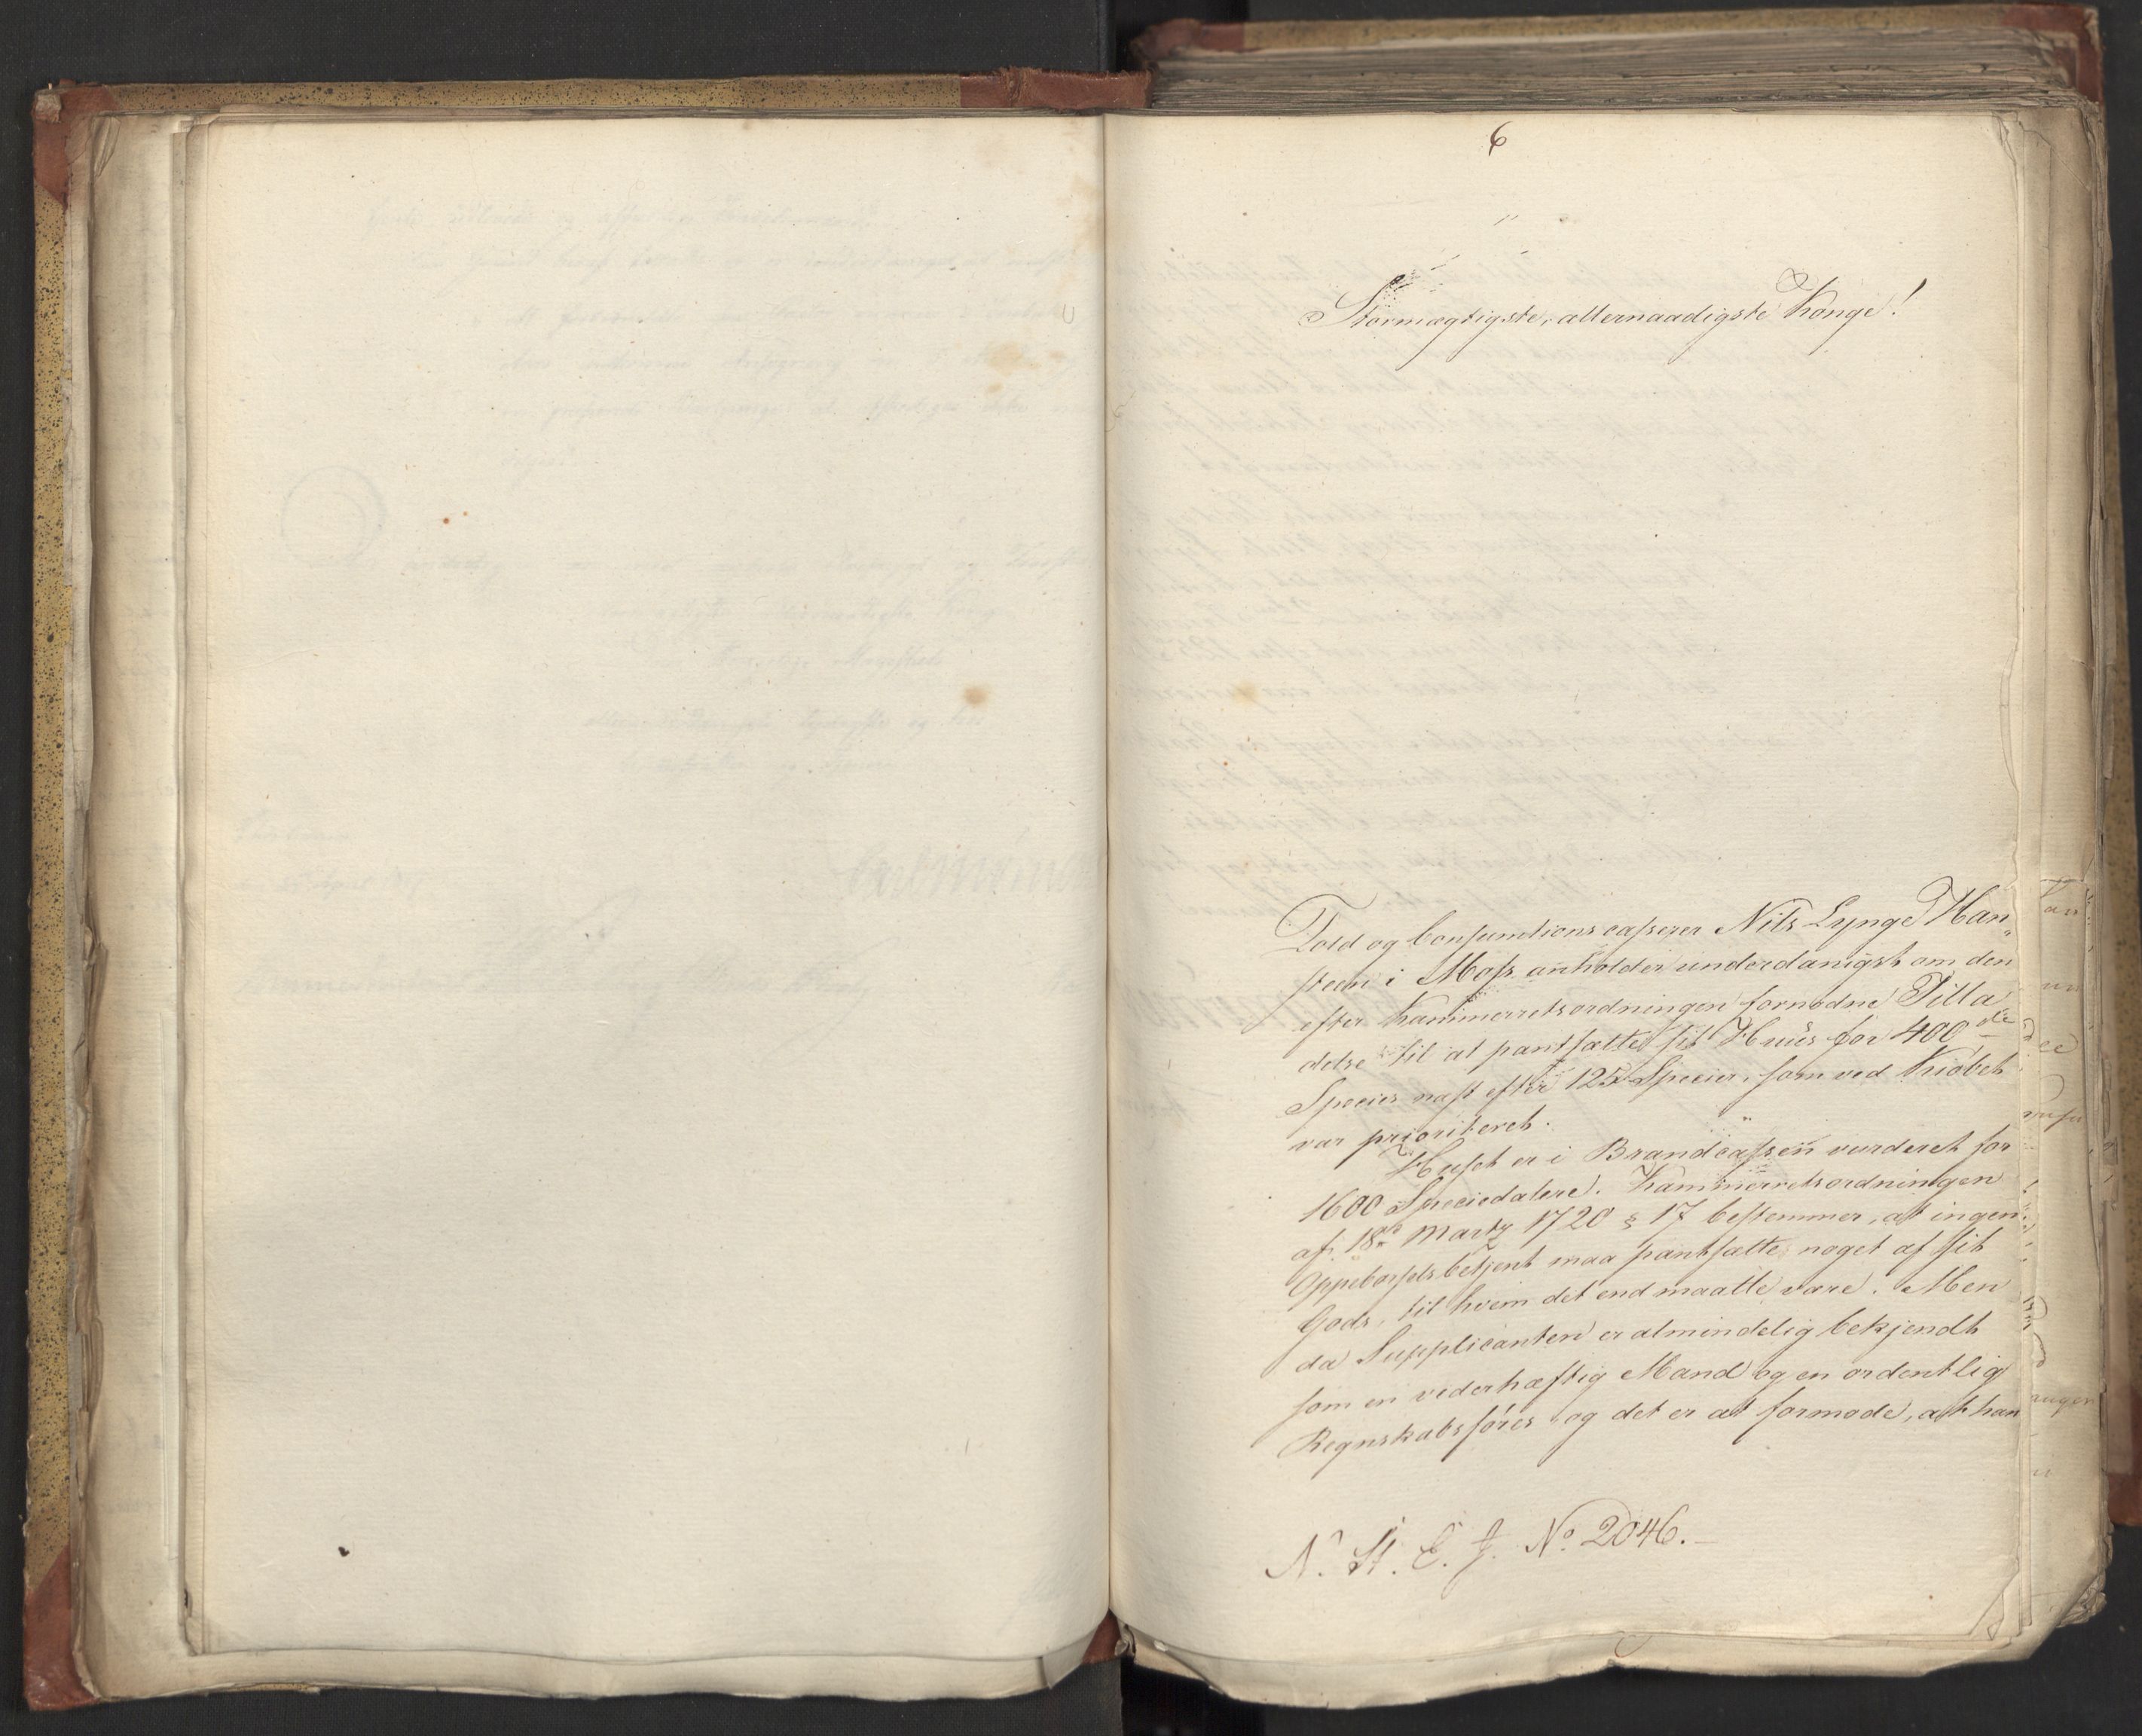 6
Stormægtigste, allernaadigste Konge!
Told og Consumtionscasserer Nils Lynge Han„
steen i Moss anholder underdanigst om den
efter Kammerretsordningen fornødne Tilla„
delse til at pantsætte sit Huus for 400 de
Species næst efter 125 Species, som ved Kiøbet
var prioriteret.
Huset er i Brandcassen vurderet for
1600 Speciedalere. Kammerretsordningen
af 18de Martz 1720 § 17 bestemmer, at ingen
Oppebørselsbetjent maa pantsætte noget af sit
Gods, til hvem det end maatte være. Men
da Supplicanten er almindelig bekjendt
som en vederhæftig Mand og en ordentlig
Regnskabsfører og det er at formode, at han
N. St. C. J. No. 2046.